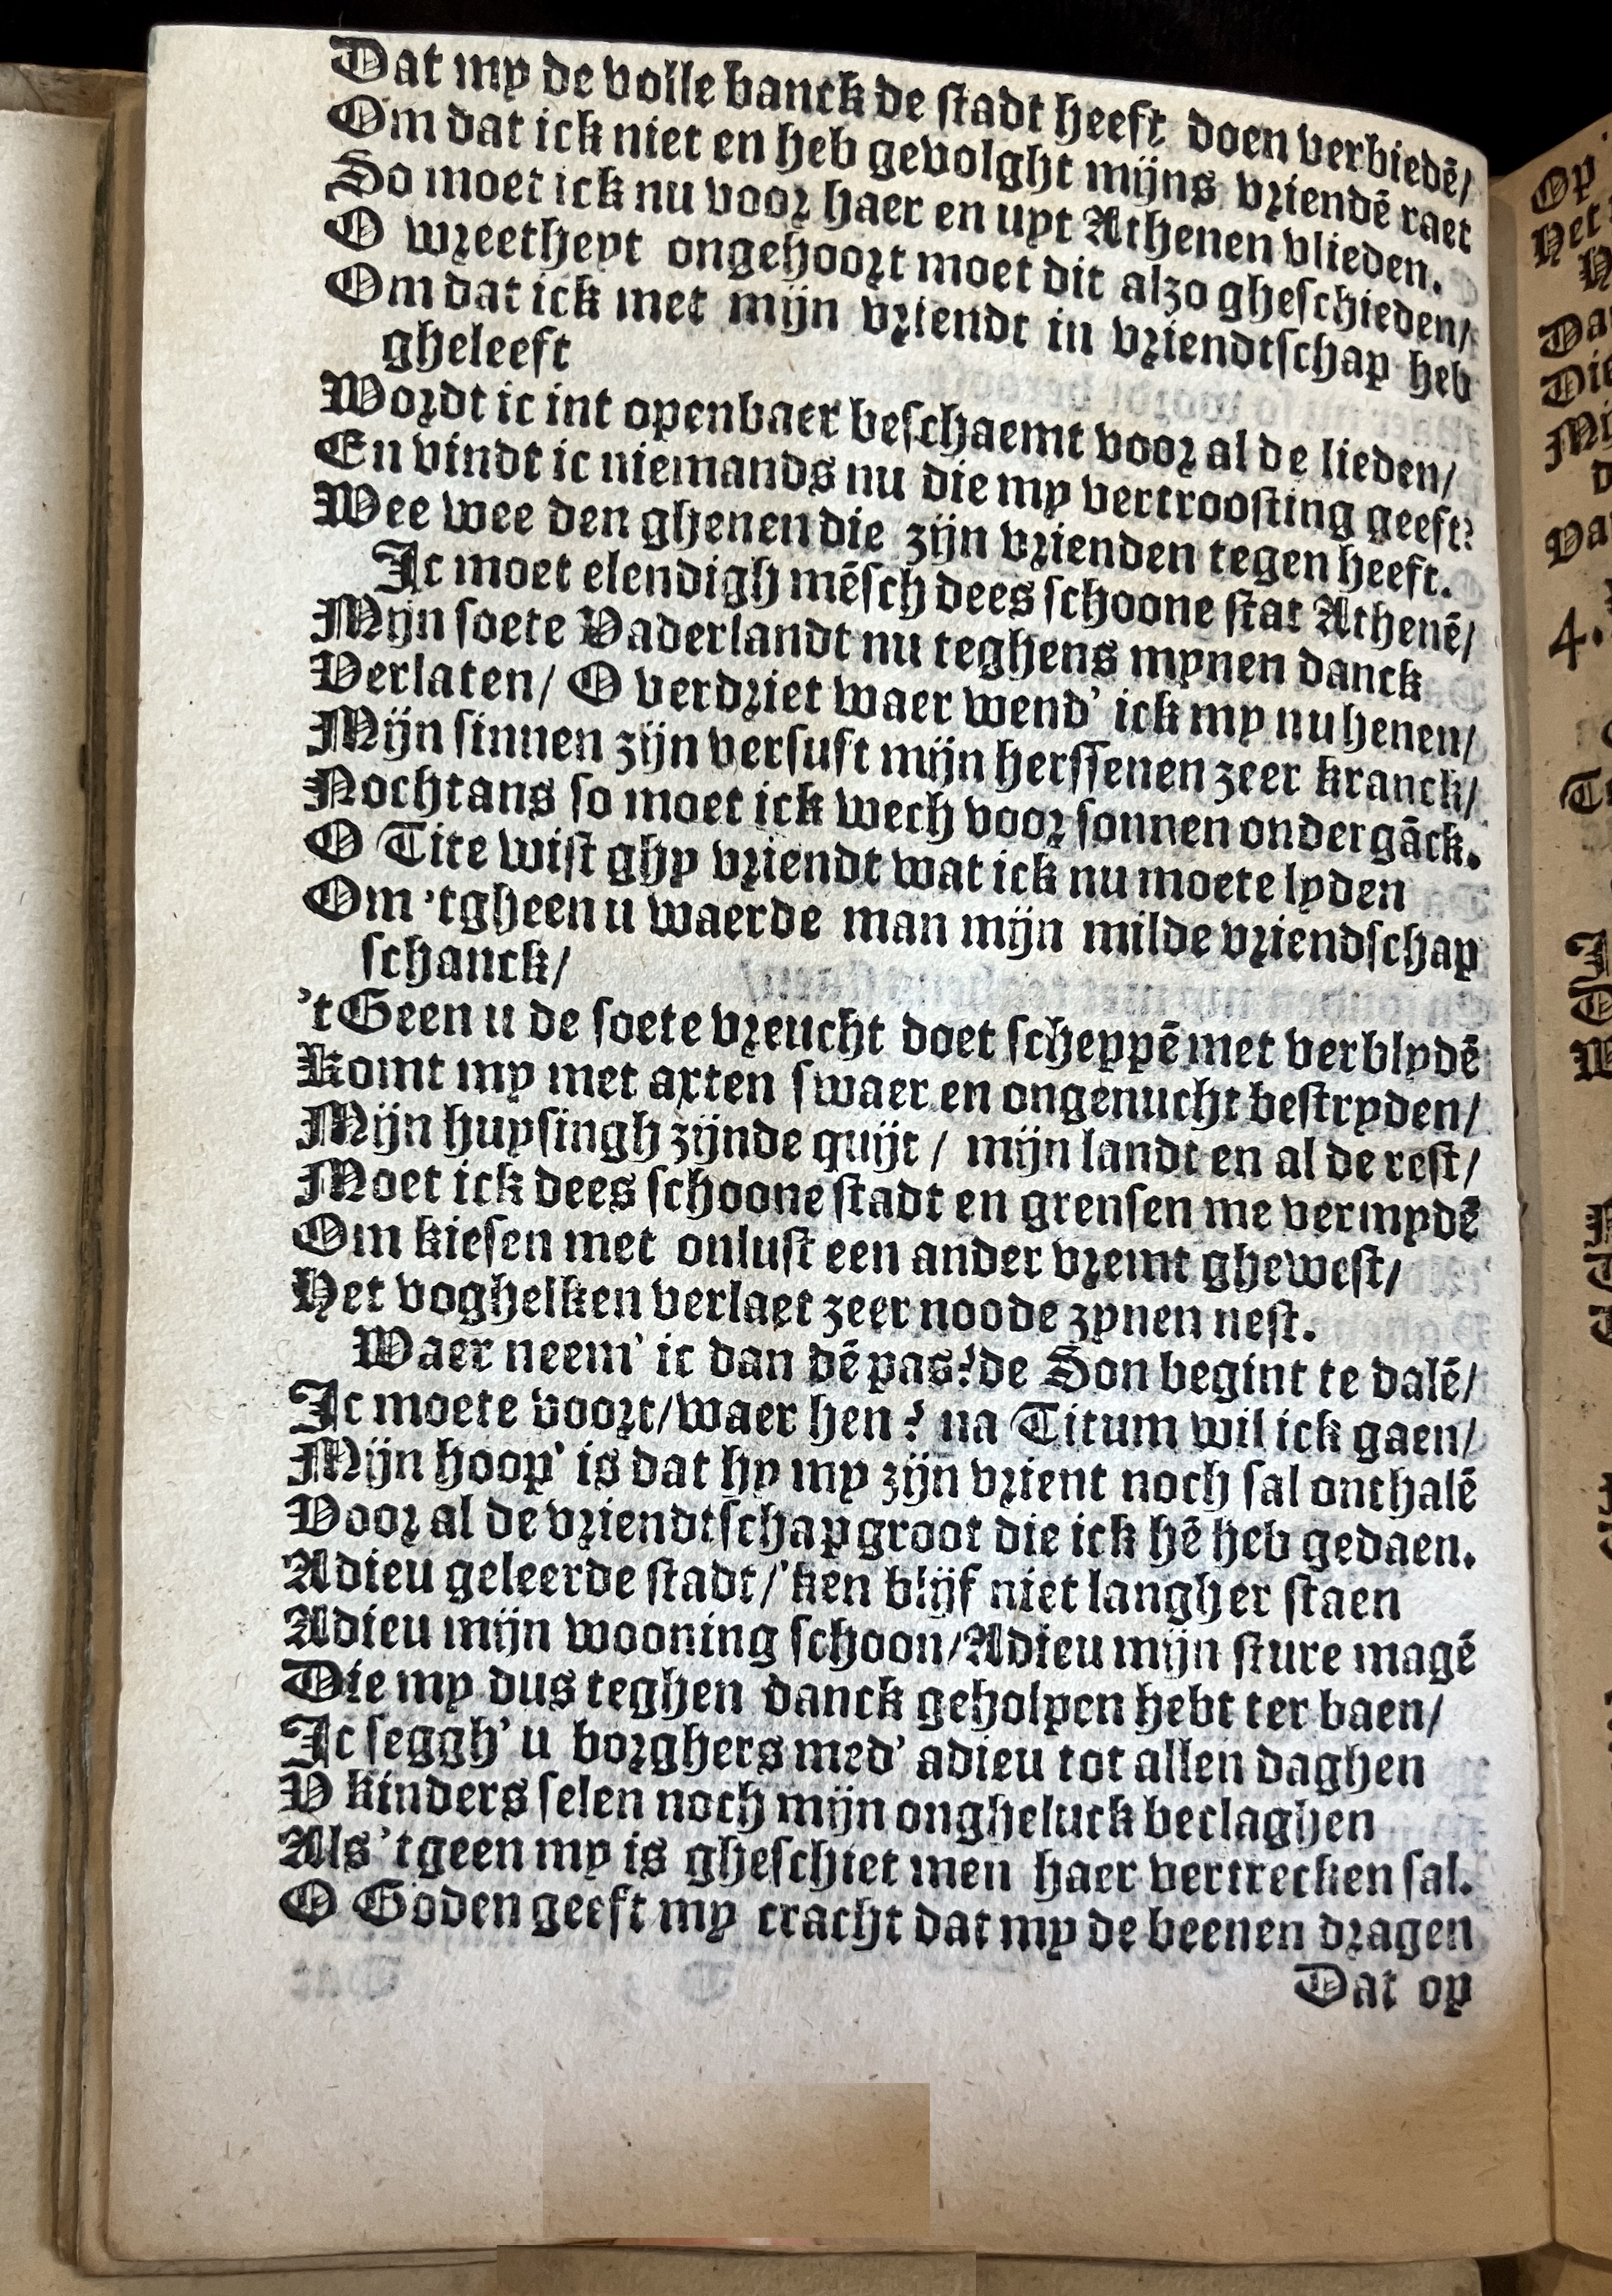 Dat my de volle banck de stadt heeft doen verbiedē/
Om dat ick niet en heb gevolght mijns vriendē raet
So moet ick nu voor haer en uyt Athenen vlieden.
O wreetheyt ongehoort moet dit alzo gheschieden/
Om dat ick met mijn vriendt in vriendtschap heb
gheleeft
Wordt ic int openbaer beschaemt voor al de lieden/
En vindt ic niemands nu die my vertroosting geeft?
Wee wee den ghenen die zijn vrienden tegen heeft.
Ic moet elendigh mēsch dees schoone stat Athenē/
Mijn soete Vaderlandt nu teghens mynen danck
Verlaten/ O verdriet waer wend' ick my nu henen/
Mijn sinnen zijn versuft mijn herssenen zeer kranck/
Nochtans so moet ick wech voor sonnen ondergāck.
O Tite wist ghy vriendt wat ick nu moete lyden
Om 'tgheen u waerde man mijn milde vriendschap
schanck/
't Geen u de soete vreucht doet scheppē met verblydē
Komt my met axten swaer en ongenucht bestryden/
Mijn huysingh zijnde quijt / mijn landt en al de rest/
Moet ick dees schoone stadt en grensen me vermydē
Om kiesen met onlust een ander vremt ghewest/
Het voghelken verlaet zeer noode zynen nest.
Waer neem' ic dan dē pas? de Son begint te dalē/
Ic moete voort/waer hen? na Titum wil ick gaen/
Mijn hoop' is dat hy my zijn vrient noch sal onthalē
Voor al de vriendtschap groot die ick hē heb gedaen.
Adieu geleerde stadt/'ken blijf niet langher staen
Adieu mijn wooning schoon/Adieu mijn sture magē
Die my dus teghen danck geholpen hebt ter baen/
Ic seggh' u borghers med' adieu tot allen daghen
V kinders selen noch mijn ongheluck beclaghen
Als 'tgeen my is gheschiet men haer vertrecken sal.
O Goden geeft my cracht dat my de beenen dragen
Dat op